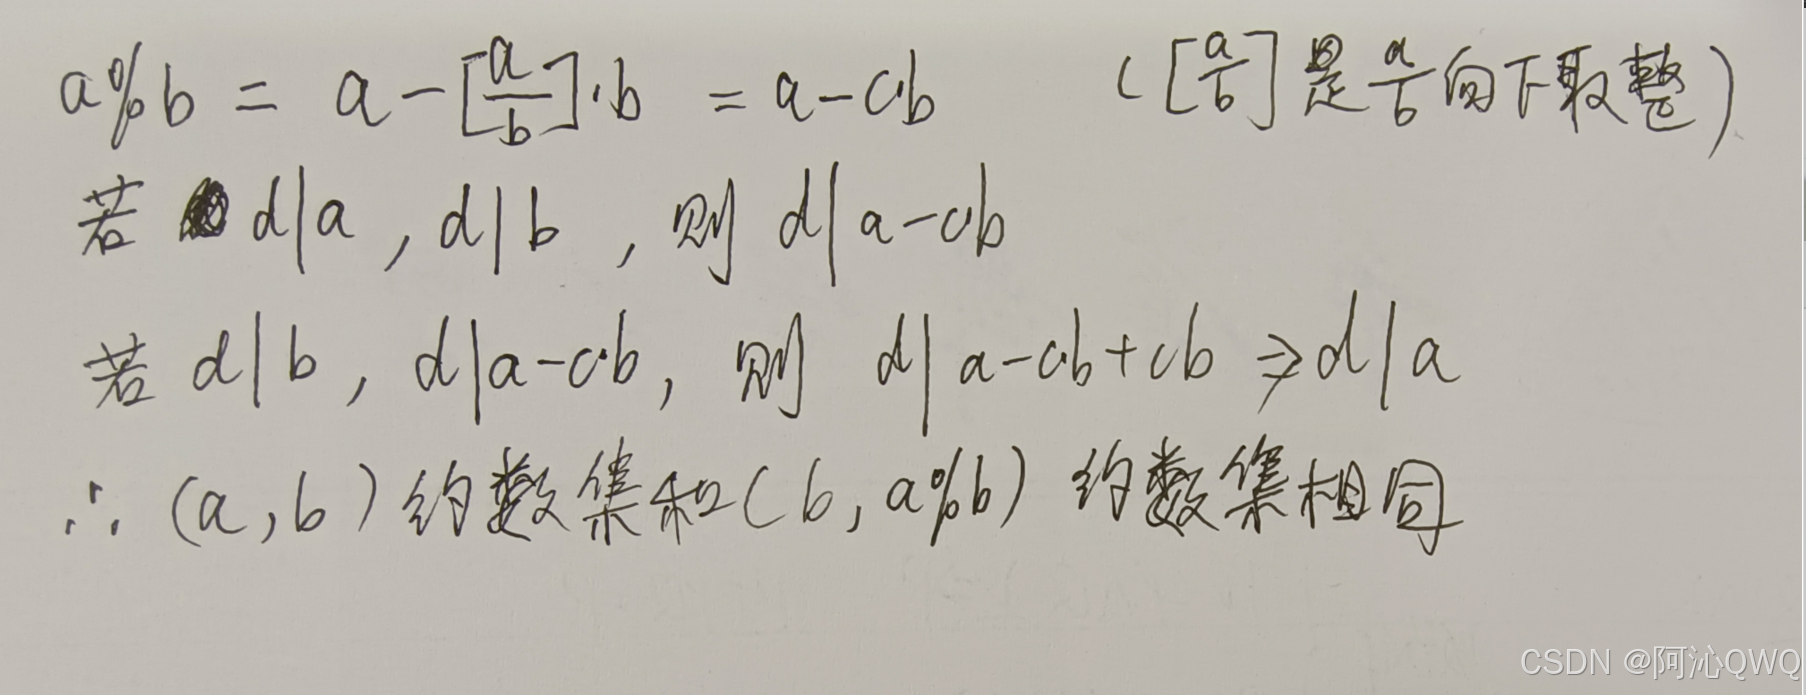 a%b = a-[a/b]·b = a-c·b ([a/b]是a/b向下取整)
若 d|a, d|b, 则 d|a-c·b
若 d|b, d|a-c·b, 则 d|a-c·b+cb ⇒ d|a
∴ (a,b)约数集和(b,a%b)约数集相同
CSDN @阿沁QWQ